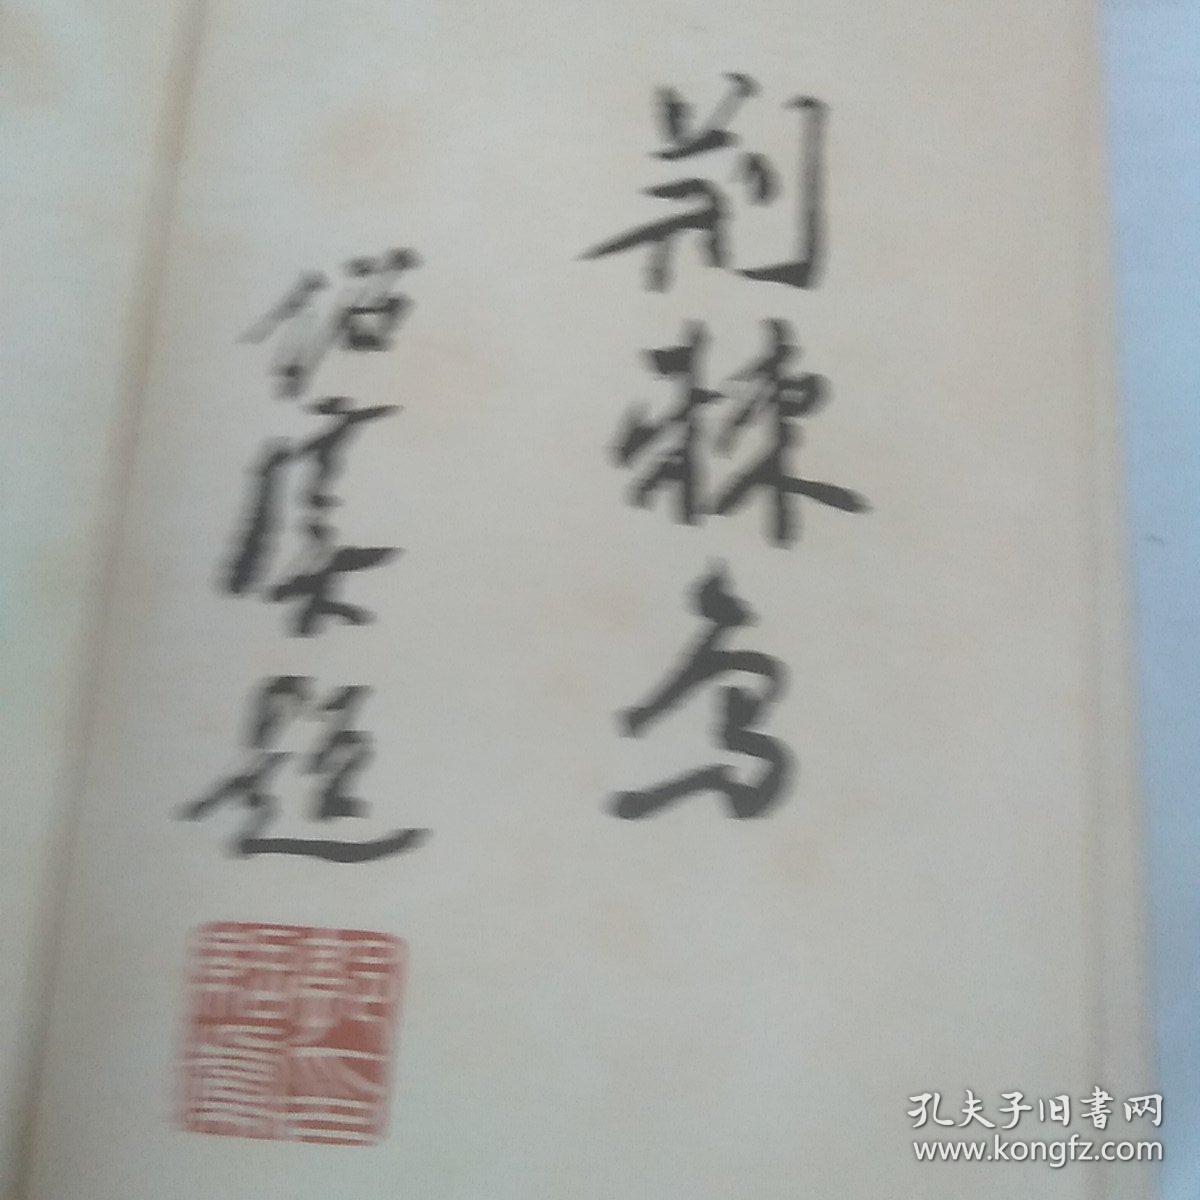 荆棘鸟
绍虞题
孔夫子旧书网
www.kongfz.com